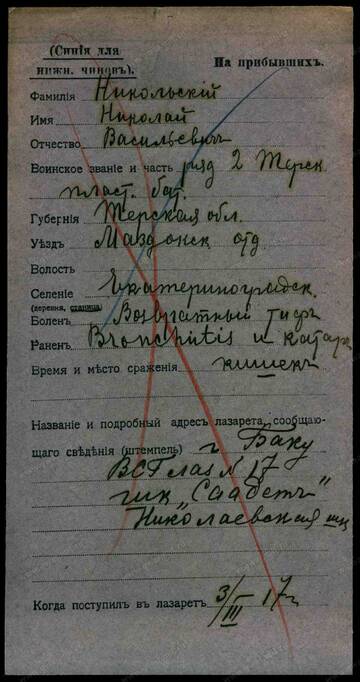 (Синія для
нижн. чиновъ).
На прибывшихъ.
Фамилія Никольскій
Имя Николай
Отчество Васильевичъ
Воинское званіе и часть ряд 2 Терск
пласт. бат.
Губернія Терская обл.
Уѣздъ Маздокск отд
Волость
Селеніе Екатериноградск.
(деревня, станица)
Боленъ Возвратный тифъ
Раненъ Bronchitis и катаръ
Время и мѣсто сраженія кишекъ
Названіе и подробный адресъ лазарета, сообщаю-
щаго свѣдѣнія (штемпель) г. Баку
ВСГ лаз N 17
шк „Саадетъ"
Николаевская
Когда поступилъ въ лазаретъ 3/III 17г